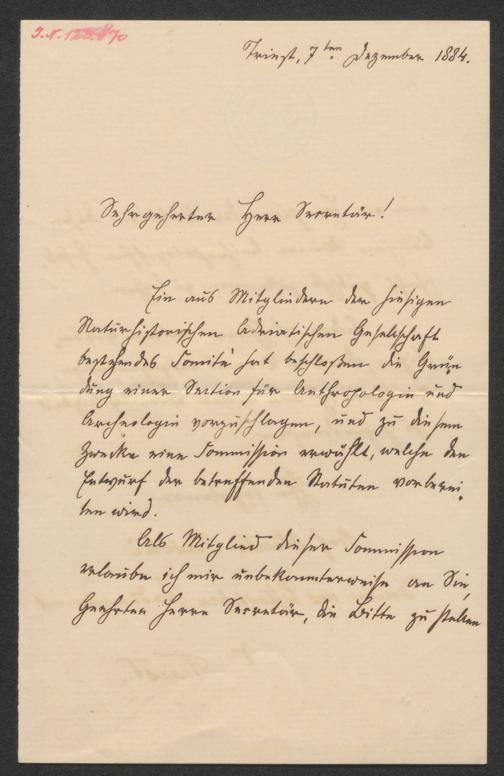 Triest, 7ten Dezember 1884.
Sehrgeehrter Herr Secretär!
Ein aus Mitgliedern der hiesigen
Naturhistorischen Adriatischen Gesellschaft
bestehendes Comité hat beschloßen die Grün
dung einer Section für Anthropologie und
Archeologie vorzuschlagen, und zu diesem
Zwecke eine Commission erwählt, welche den
Entwurf der betreffenden Statuten vorberei
ten wird.
Als Mitglied dieser Commission
erlaube ich mir unbekannterweise an Sie,
Geehrten Herrn Secretär, die Bitte zu stellen